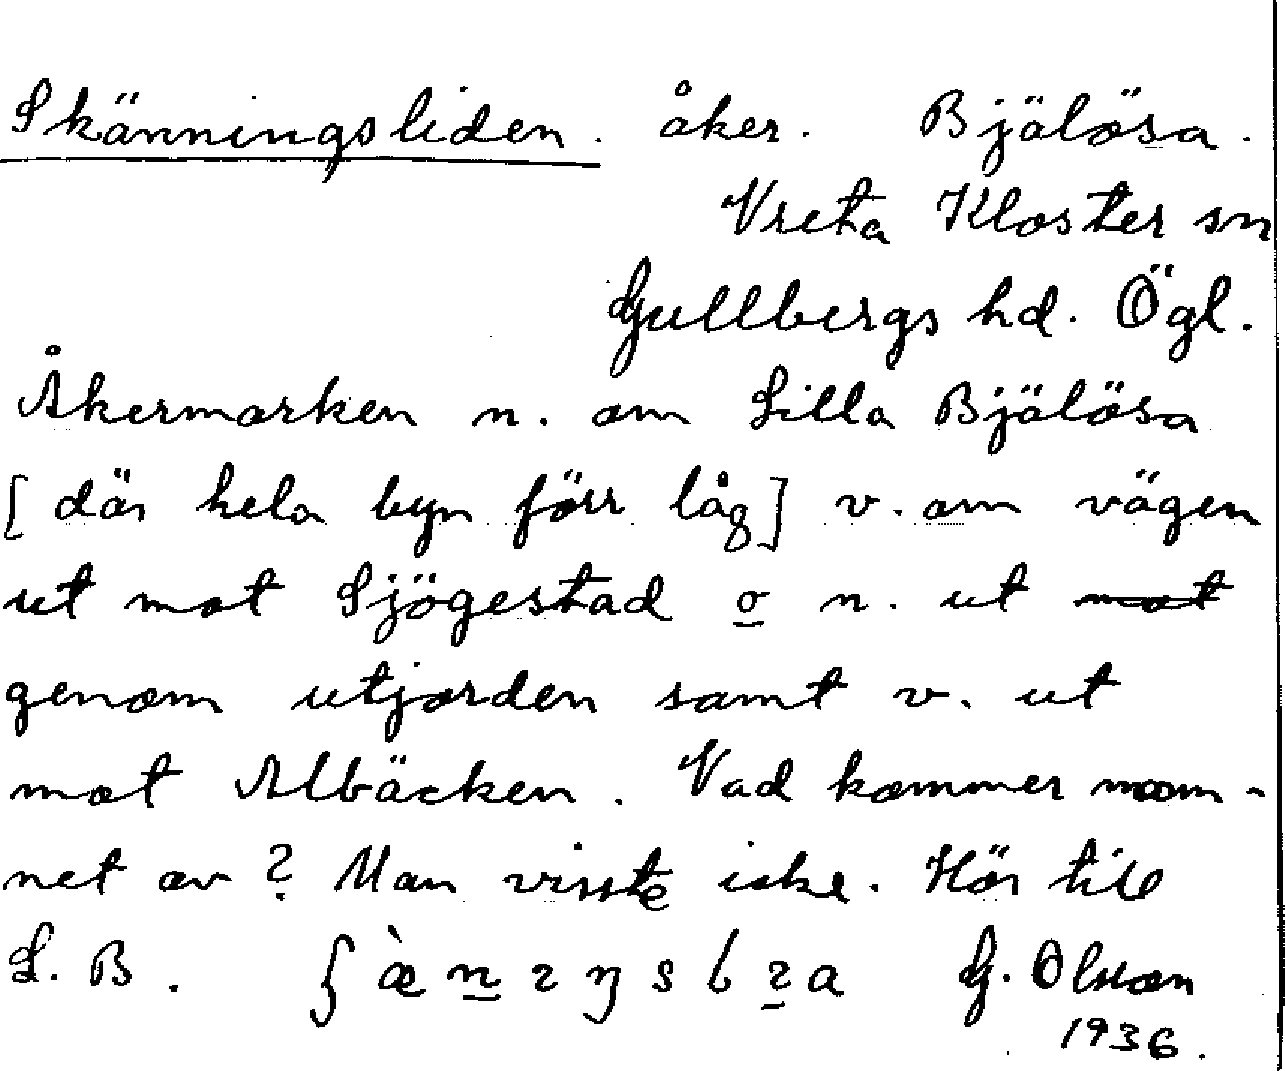 Skänningsliden. åker. Bjälösa.
Vreta Kloster sn
Gullbergs hd. Ögl.
Åkermarken n. om Lilla Bjälösa
[där hela byn förr låg] v. om vägen
ut mot Sjögestad o n. ut mot
genom utjorden samt v. ut
mot Albäcken. Vad kommer nam-
net av? Man visste icke. Hör till
L. B. G. Olsson
1936.